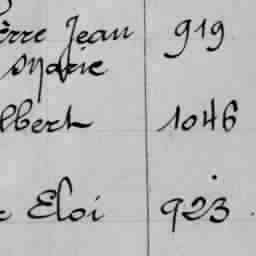 erre Jean 919
Marie
lbert 1046
e Eloi 923